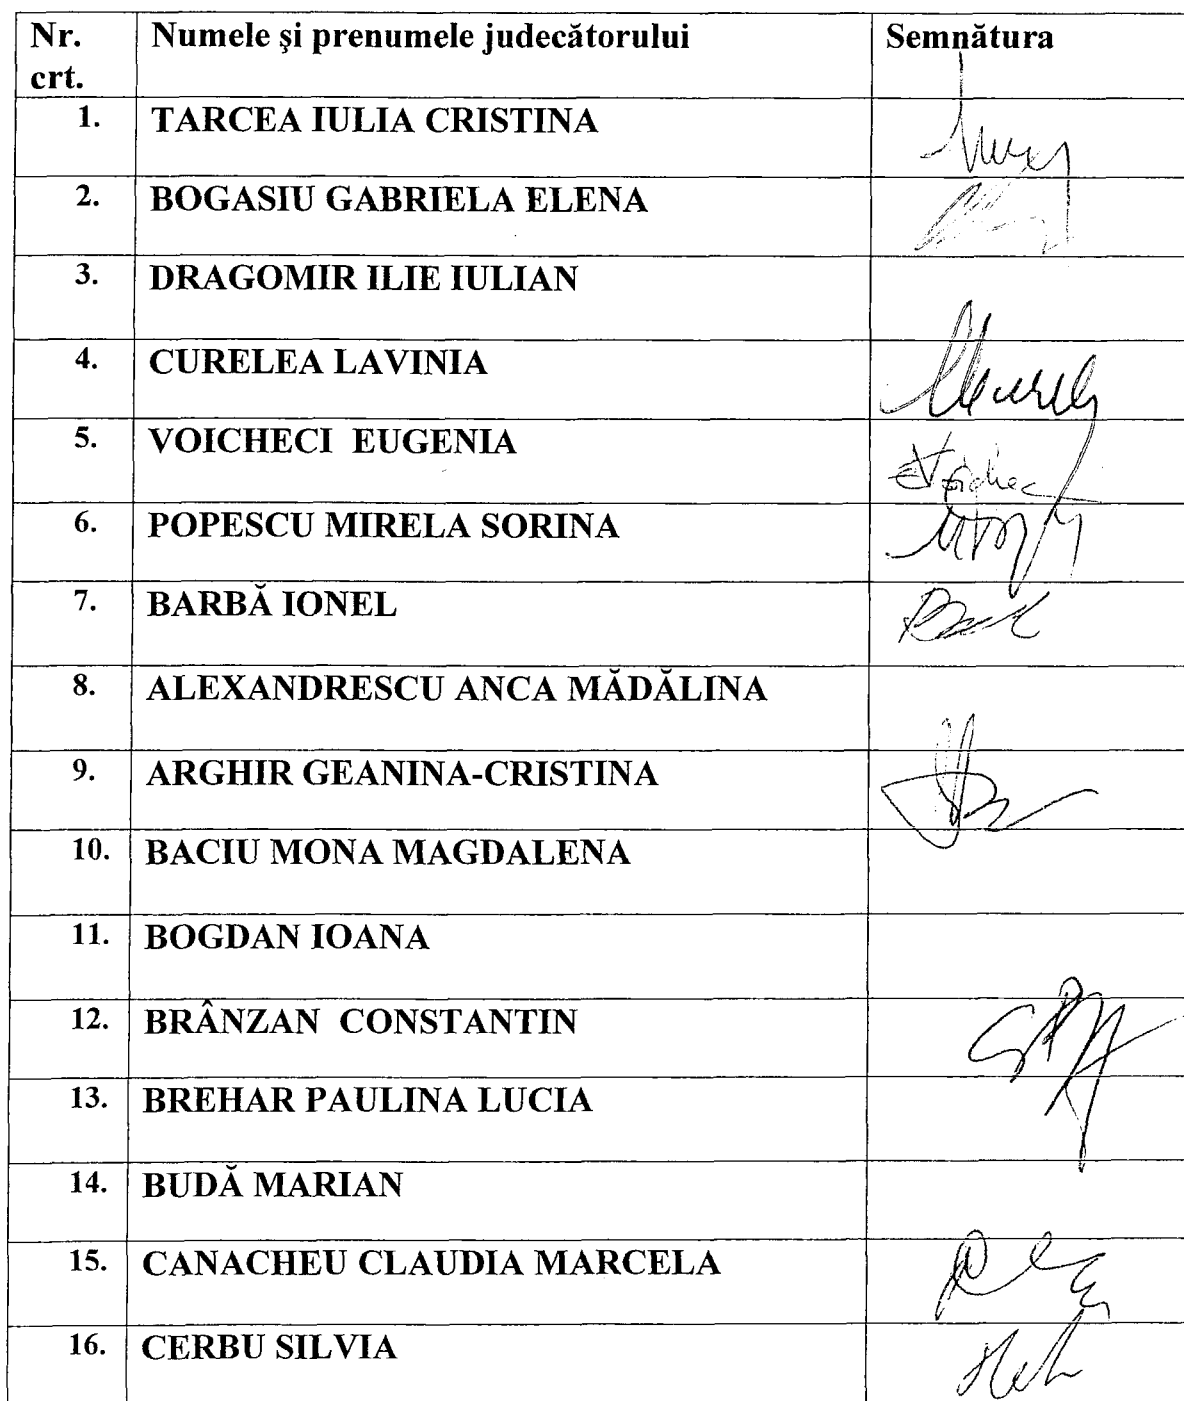 Nr. crt. Numele şi prenumele judecătorului Semnătura
1. TARCEA IULIA CRISTINA
2. BOGASIU GABRIELA ELENA
3. DRAGOMIR ILIE IULIAN
4. CURELEA LAVINIA
5. VOICHECI EUGENIA
6. POPESCU MIRELA SORINA
7. BARBĂ IONEL
8. ALEXANDRESCU ANCA MĂDĂLINA
9. ARGHIR GEANINA-CRISTINA
10. BACIU MONA MAGDALENA
11. BOGDAN IOANA
12. BRÂNZAN CONSTANTIN
13. BREHAR PAULINA LUCIA
14. BUDĂ MARIAN
15. CANACHEU CLAUDIA MARCELA
16. CERBU SILVIA